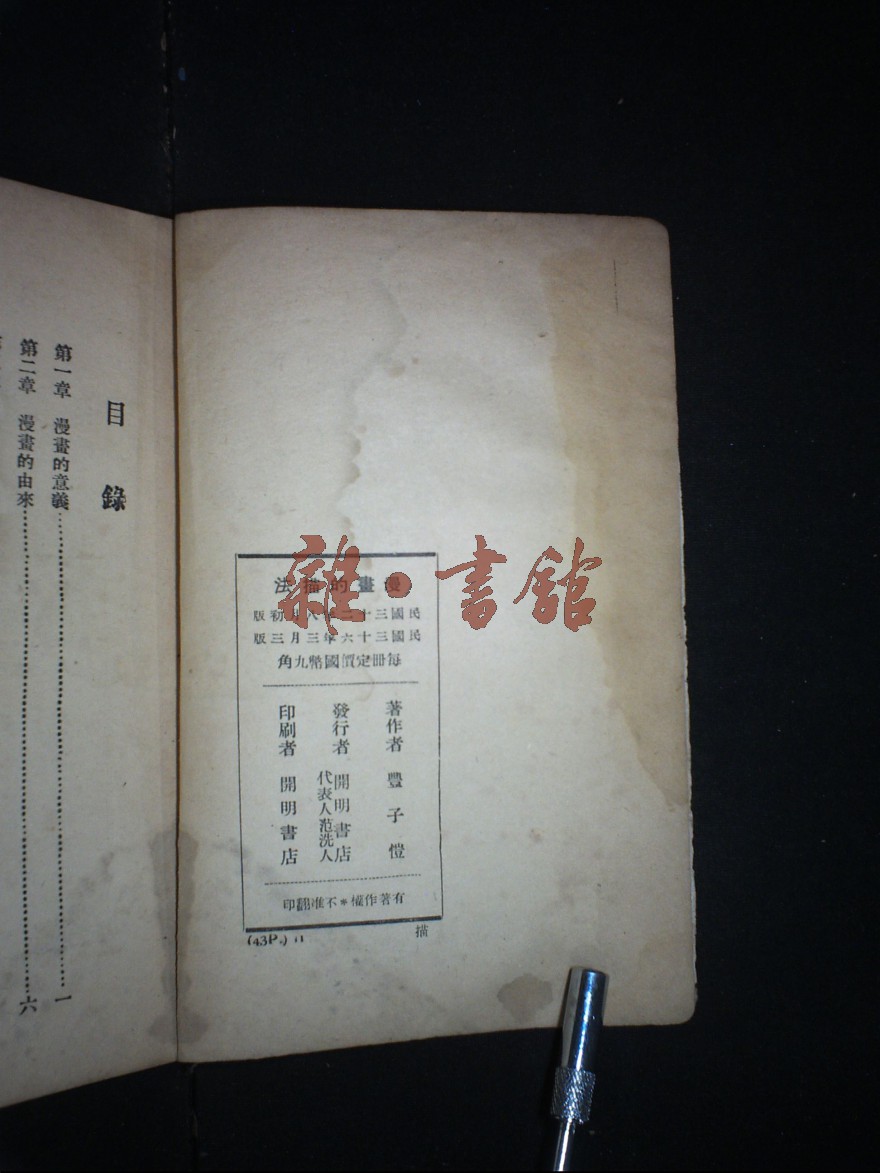 漫畫的描法
民國三十二年八月初版
民國三十六年三月三版
每冊定價國幣九角
著作者 豐子愷
發行者 開明書店
代表人范洗人
印刷者 開明書店
有著作權＊不准翻印
描
(43P.)
目錄
第一章 漫畫的意義……一
第二章 漫畫的由來……六
雜·書館